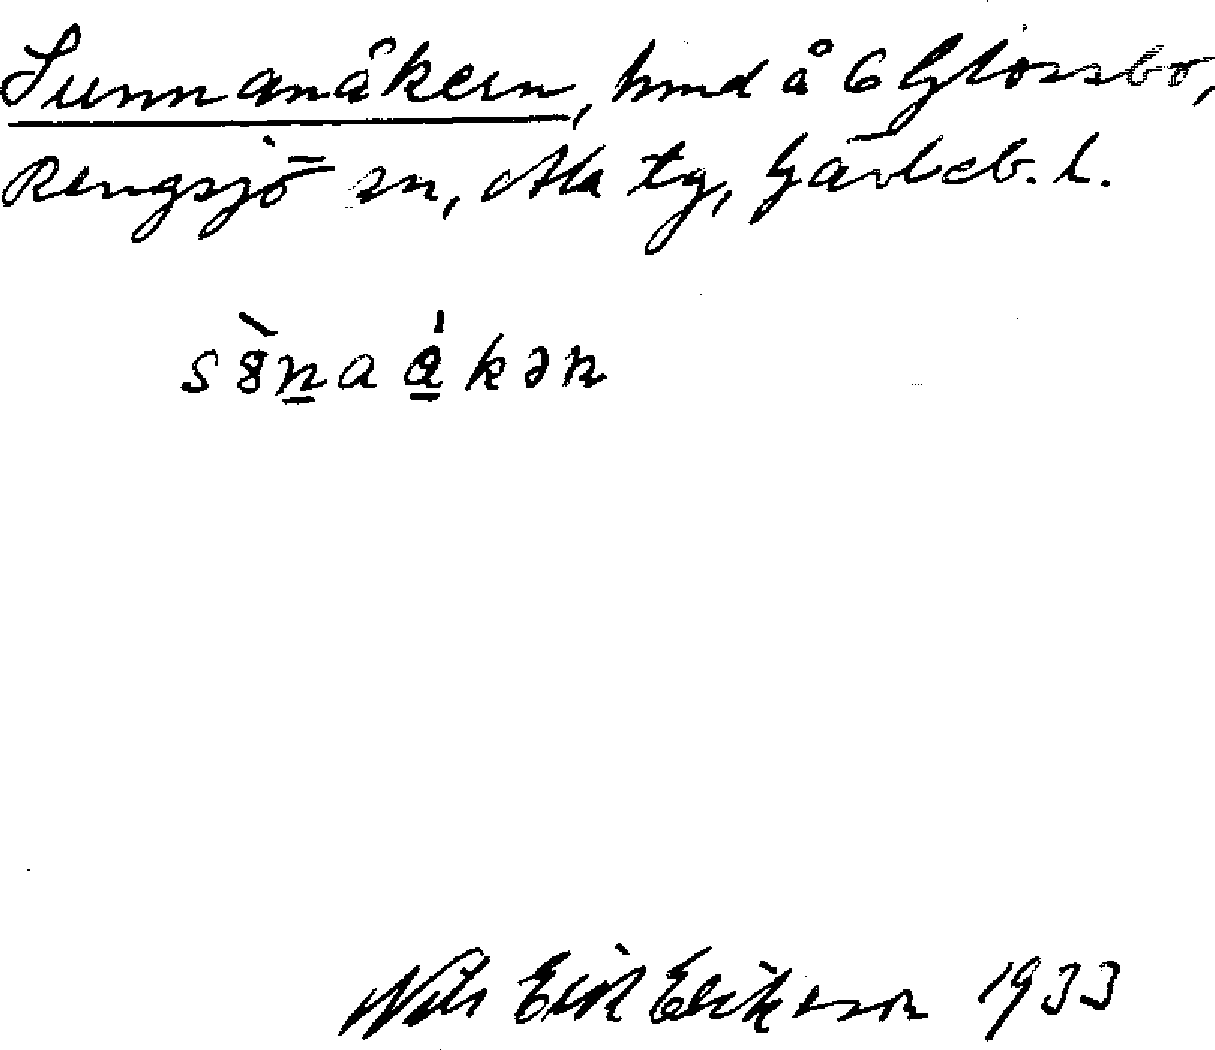 Sunnanåkern, hmd å 6 Glössbo,
Rengsjö sn, Ala tg, Gävleb. l.
Nils Erik Eriksson 1933